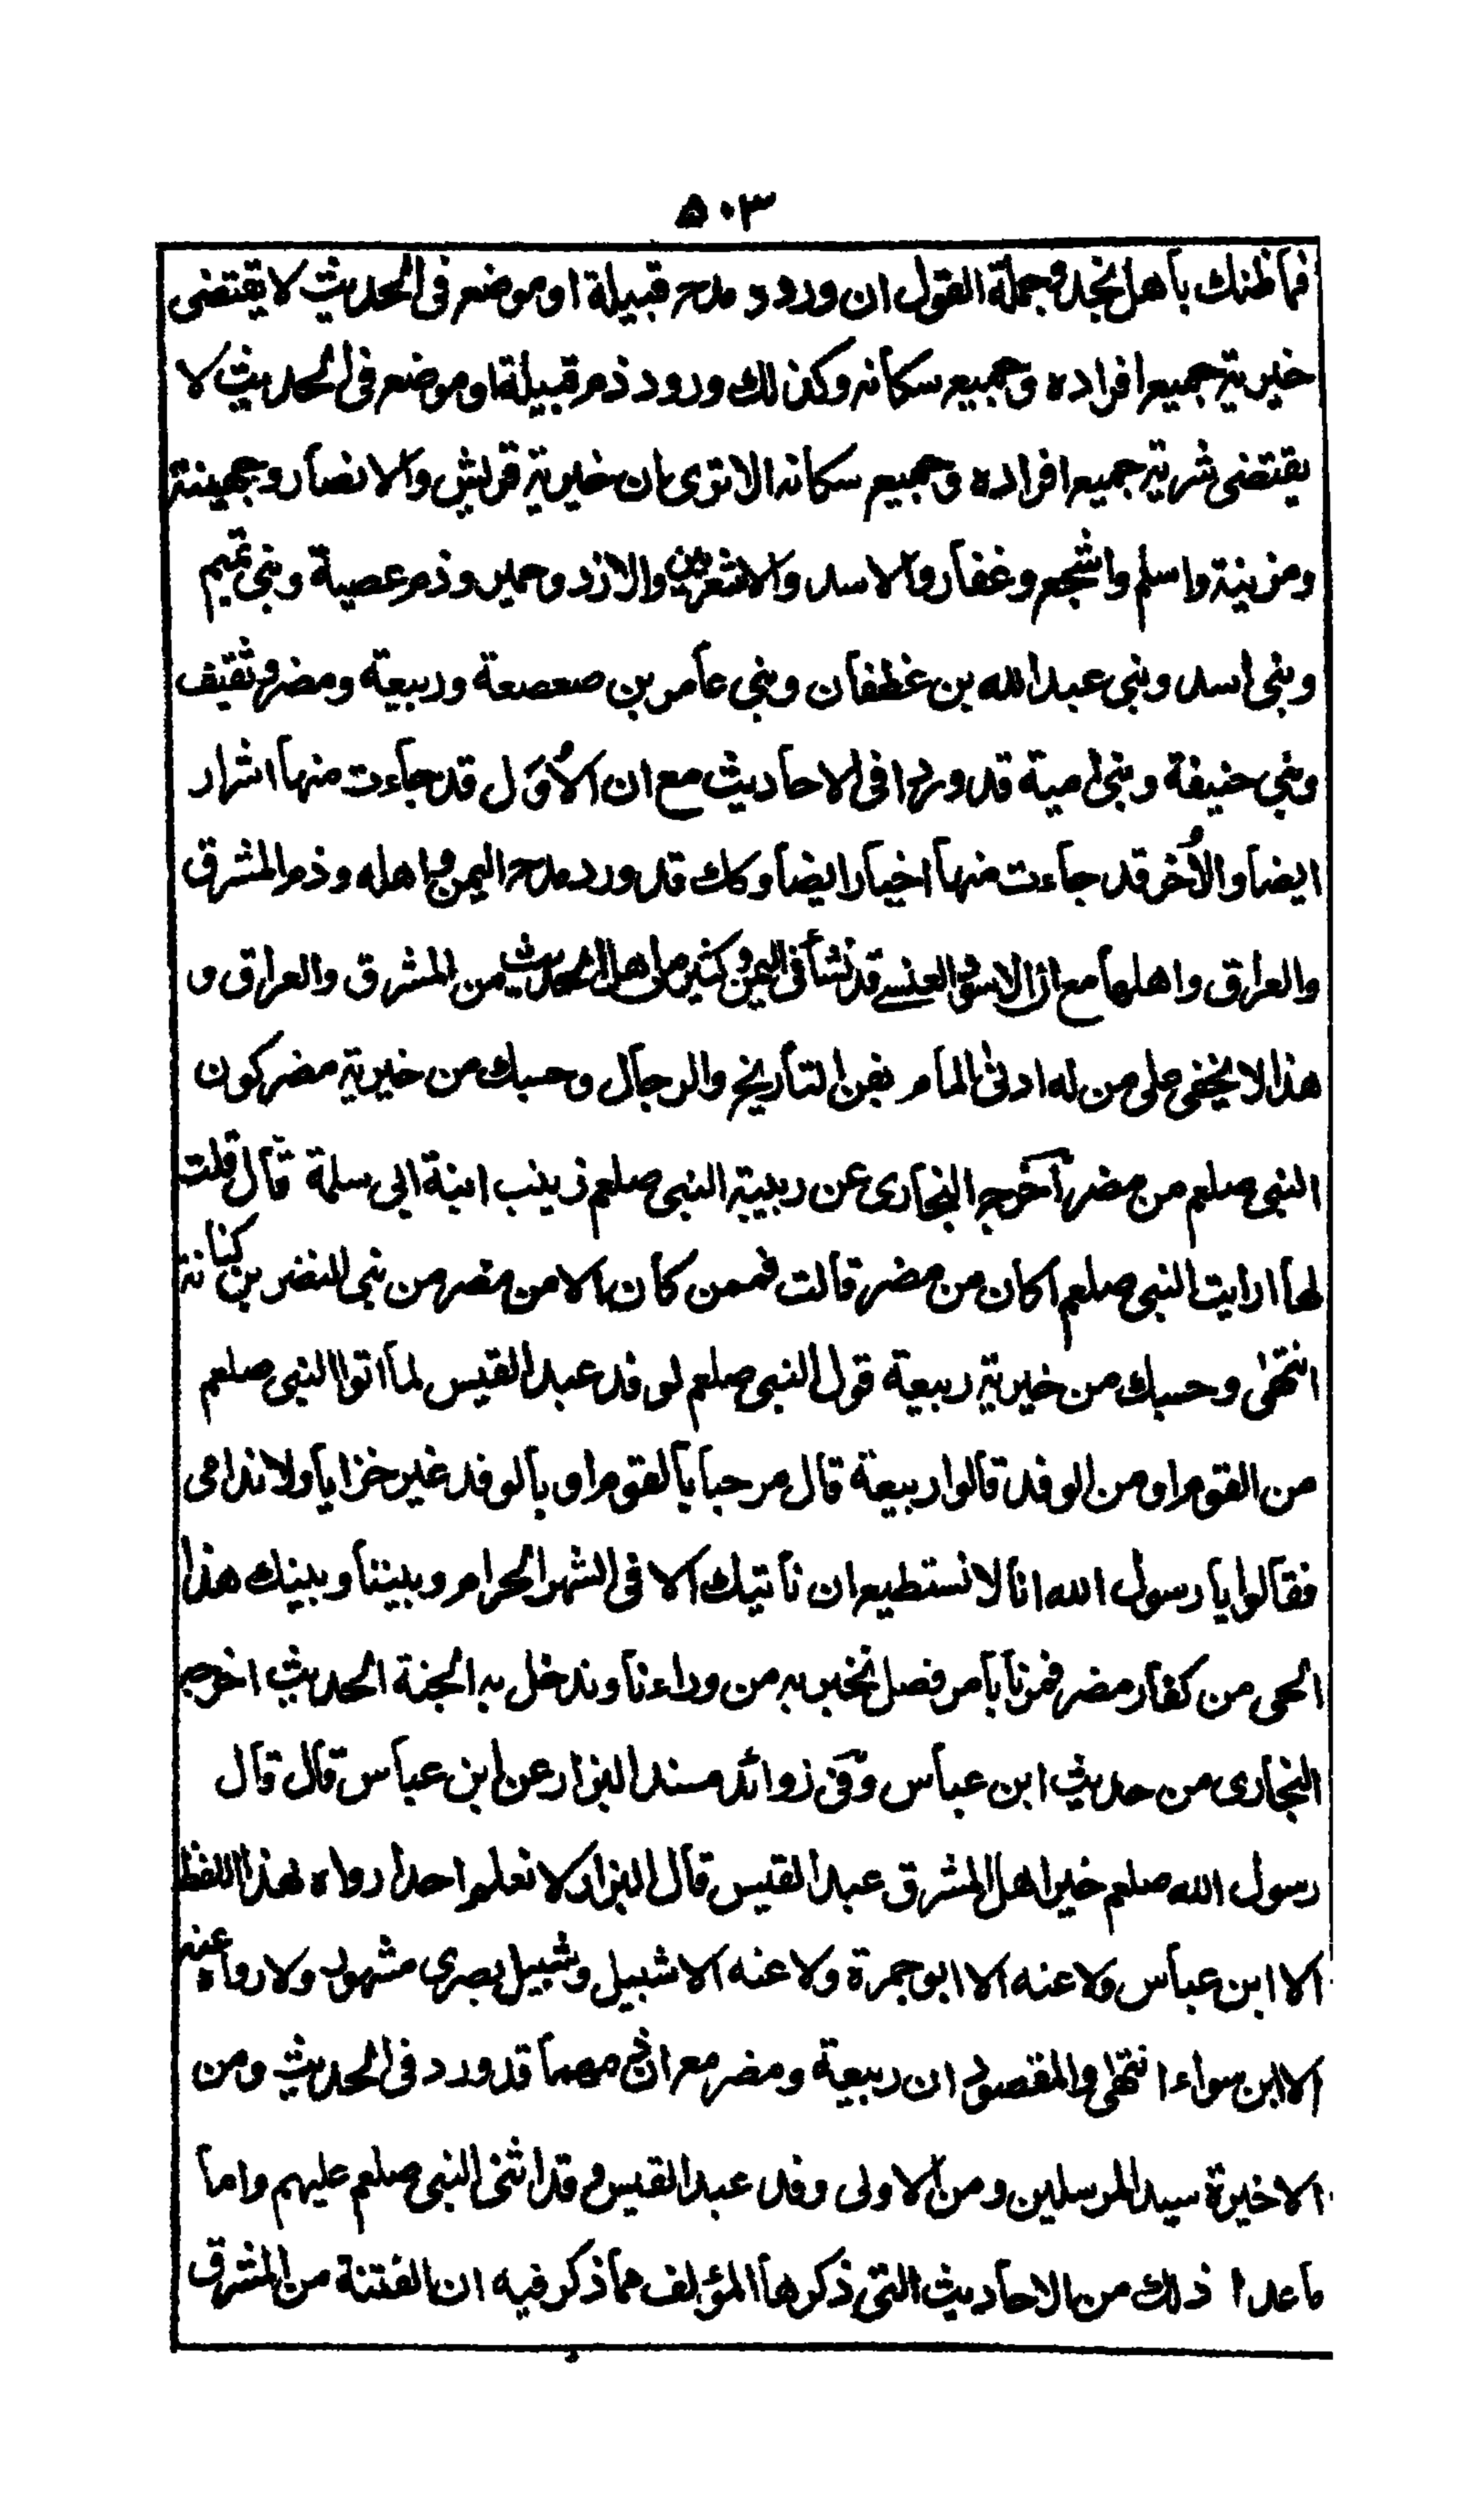 ٥٠٣
فما ظنك بأهل نجد وجملة القول ان ورود مدح قبيلة او موضع فى الحديث لا يقتضى
خيرية جميع افراده وجميع سكانه وكذلك ورود ذم قبيلة او موضع فى الحديث لا
يقتضى شرية جميع افراده وجميع سكانه الا ترى ان خيرية قريش والانصار وجهينة
ومزينة واسلم واشجع وغفار والاسد والاشعريين والازد وحمير وذم عصية وبنى تميم
وبنى اسد وبنى عبد الله بن غطفان وبنى عامر بن صعصعة وربيعة ومضر وثقيف
وبنى حنيفة وبنى امية قد وردا فى الاحاديث مع ان الأُوَل قد جاءت منها اشرار
ايضا والأُخر قد جاءت منها اخيار ايضا وكك قد ورد مدح اليمن واهله وذم المشرق
والعراق واهلها مع ان الاسود العنسے قد نشأ فى اليمن وكثير من اهل الحديث من المشرق والعراق و
هذا لا يخفى على من له ادنى المام بفن التاريخ والرجال وحسبك من خيرية مضر كون
النبى صلعم من مضر آخرجه البخارى عن ربيبة النبى صلعم زينب ابنة ابى سلمة قال قلت
لها ارايت النبى صلعم اكان من مضر قالت فممن كان الا من مضر من بنى النضر بن كنانة
انتهى وحسبك من خيرية ربيعة قول النبى صلعم لوفد عبد القيس لما اتوا النبى صلعم
من القوم او من الوفد قالوا ربيعة قال مرحبا بالقوم او بالوفد غير خزايا ولا ندامى
فقالوا يا رسول الله انا لا نستطيع ان ناتيك الا فى الشهر الحرام وبيننا وبينك هذا
الحى من كفار مضر فمرنا بامر فصل نخبر به من وراءنا وندخل به الجنة الحديث اخرجه
البخارى من حديث ابن عباس وفى زوائد مسند البزار عن ابن عباس قال قال
رسول الله صلعم خير اهل المشرق عبد القيس قال البزار لا نعلم احدا رواه بهذا اللفظ
الا ابن عباس ولا عنه الا ابو جمرة ولا عنه الا شبيل وشبيل بصرى مشهور ولا رواه عنه
الا ابن سواء انتهى والمقصود ان ربيعة ومضر مع ان ذمهما قد ورد فى الحديث ومن
الاخيرة سيد المرسلين ومن الاولى وفد عبد القيس وقد اثنى النبى صلعم عليهم واما
ما عدا ذلك من الاحاديث التى ذكرها المؤلف مما ذكر فيه ان الفتنة من المشرق